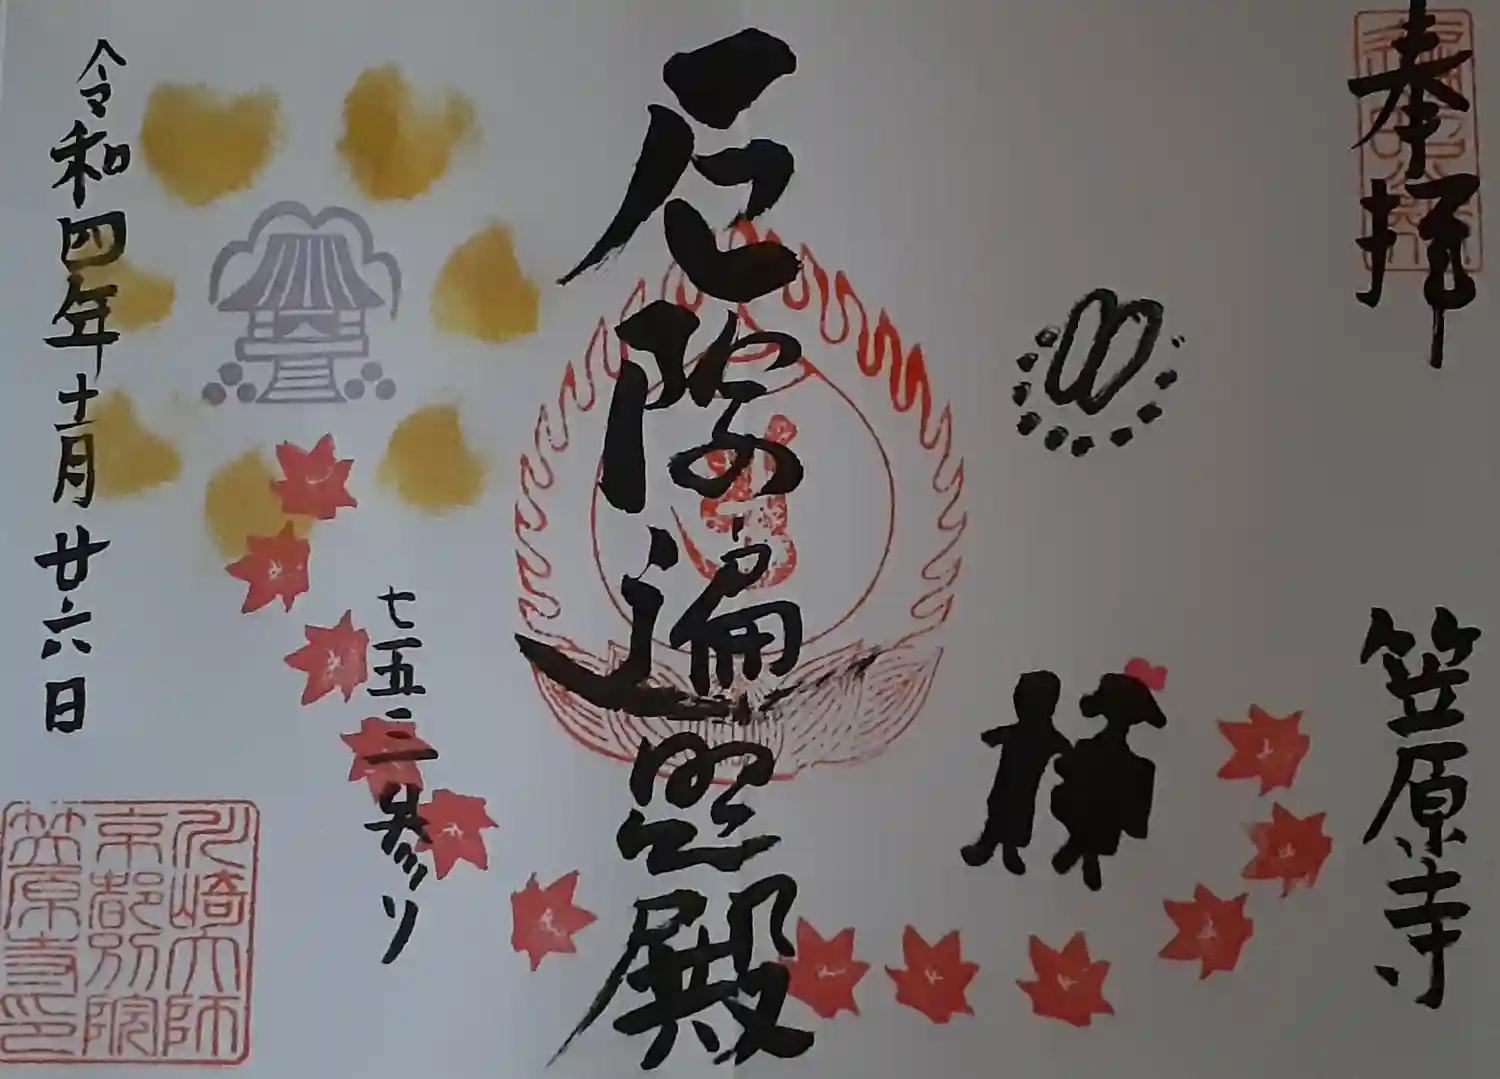 奉拝
笠原寺
厄除遍照殿
七五三参り
令和四年十一月廿六日
川崎大師
京都別院
笠原寺印